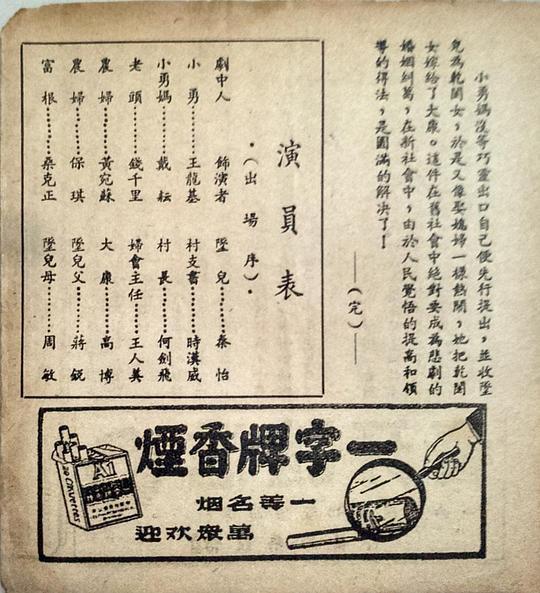 小勇媽沒等巧靈出口自己便先行提出，並收墜
兒為乾閨女，於是又像娶媳婦一樣熱鬧，她把乾閨
女嫁給了大康。這件在舊社會中絕對要成為悲劇的
婚姻糾葛，在新社會中，由於人民覺悟的提高和領
導的得法，是圓滿的解決了！
——（完）——
演員表
·（出場序）·
劇中人 飾演者 墜兒……秦怡
小勇……王龍基 村支書……時漢威
小勇媽……戴耘 村長……何劍飛
老頭……錢千里 婦會主任……王人美
農婦……黃宛蘇 大康……高博
農婦……保琪 墜兒父……蔣銳
富根……桑克正 墜兒母……周敏
一字牌香煙
一等名烟
萬眾欢迎
A1
20 CIGARETTES